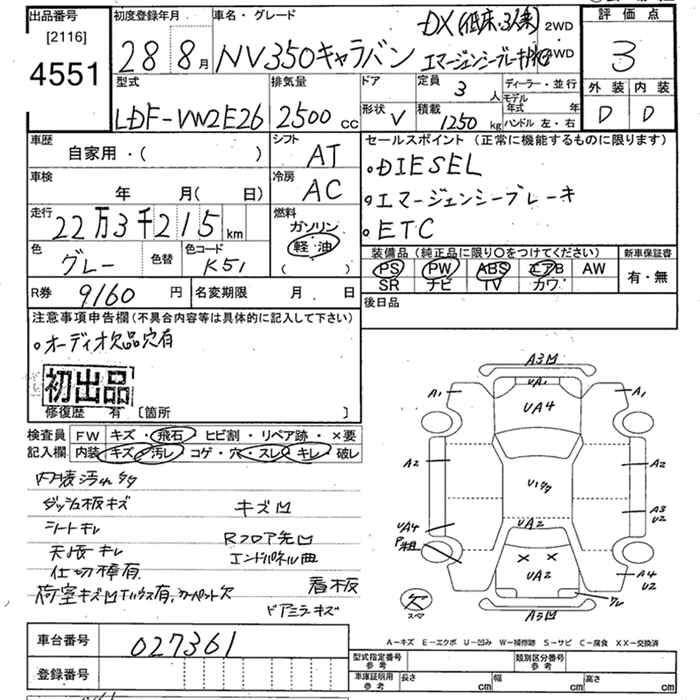 出品番号 初度登録年月 車名・グレード 評価点
[2116]
4551
28 8月 NV350キャラバン DX(低床・3人乗) 2WD
エマージェンシーブレーキ 4WD
3
外装 内装
D D
型式 排気量 ドア 定員 3人 ディーラー・並行
LDF-VW2E26 2500cc 形状 V 積載 1250kg モデル年式 年
ハンドル 左・右
車歴 シフト セールスポイント (正常に機能するものに限ります)
自家用・( ) AT
・DIESEL
車検 冷房
年 月( 日) AC
・エマージェンシーブレーキ
走行 燃料
22万3千215km ガソリン
軽・油
( )
・ETC
色 色替 色コード
グレー K51
装備品 (純正品に限り○をつけてください) 新車保証書
PS PW ABS エアB AW 有・無
SR ナビ TV カワ
R券 9160円 名変期限 月 日
後日品
注意事項申告欄(不具合内容等は具体的に記入して下さい)
・オーディオ欠品穴有
初出品
修復歴 有 [箇所 ]
検査員 FW キズ・飛石・ヒビ割・リペア跡・×要
記入欄 内装 キズ・汚レ・コゲ・穴・スレ・キレ・破レ
内装汚れ
ダッシュ板キズ キズ凹
シートキレ Rフロア先凹
天張キレ エンドパネル曲
仕切棒有
荷室キズ凹 有、カーペット欠 看板
ドアミラーキズ
A3凹
UA1
A1 UA4 A1
A2 U1 A2
A3
U2
UA4 UA2
P粗
× ×
UA2
A4
U2
スペア
A3凹
A-キズ E-エクボ U-凹み W-補修跡 S-サビ C-腐食 XX-交換済
車台番号 027361
登録番号
型式指定番号 参考 類別区分番号 参考
車庫証明用 参考 長さ cm 幅 cm 高さ cm